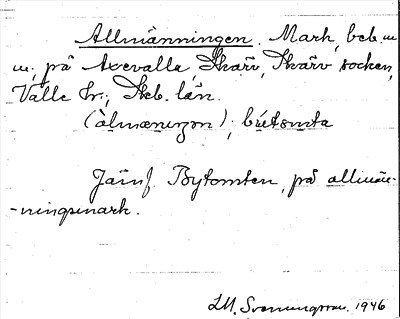 Allmänningen. Mark, beb. m.
m., på Axevalla, Skärv, Skärv socken,
Valle hr., Skb. län.
(àlmænıŋən); bẏtȯmta
Jämf. Bytomten, på allmän-
-ningsmark.
I.M. Svenningsson. 1946